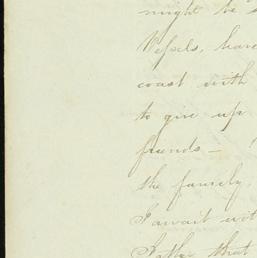 might be
Vessels, have
coast with
to give up
friends –
the family,
I await
Father that